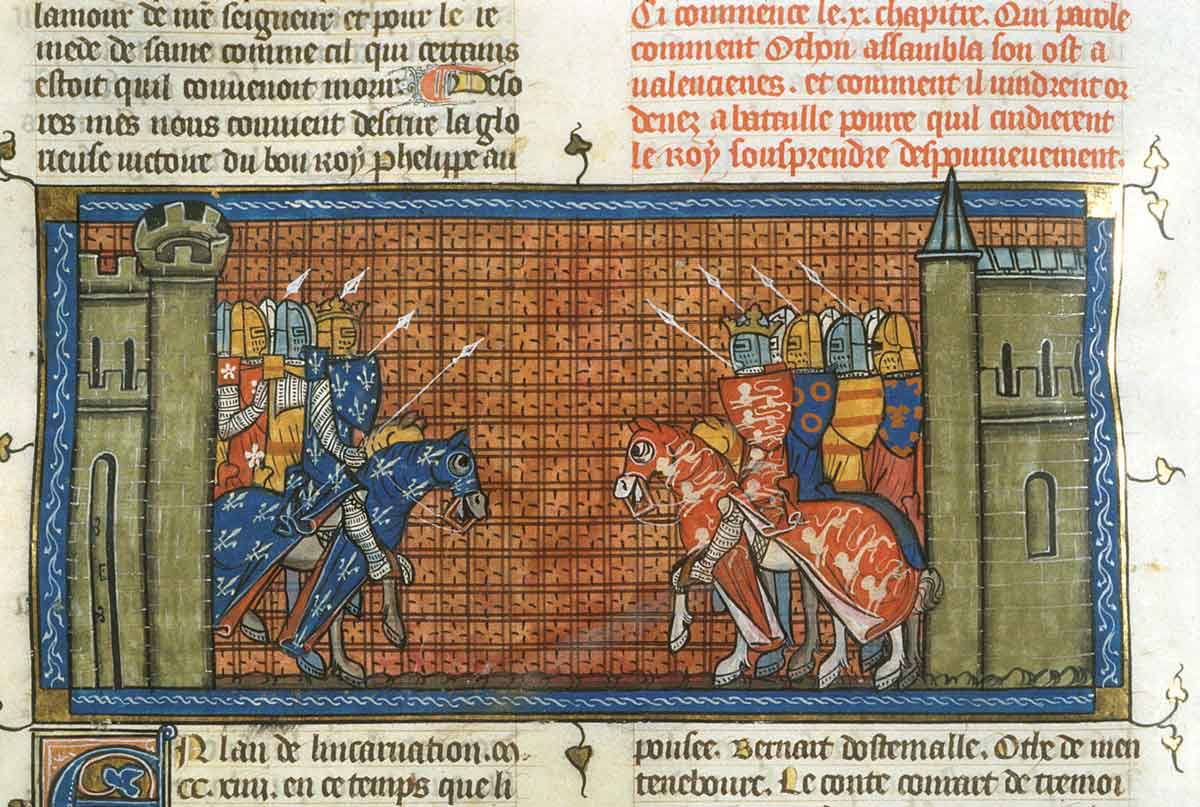 lamour de nr̃e seigneur et pour le re
mede de sante comme cil qui certains
estoit quil couuenoit morir. Deso
res mes nous couuient descrire la glo
rieuse uictoire du bon Roy Phelippe au
Ci commence le .x. chapitre. Qui parole
comment Othon assambla son ost a
ualencienes. et comment il uindrent or
denez a bataille pource quil cuidierent
le Roy sousprendre despourueuement.
En lan de lincarnation. m.
cc. xiiii. en ce temps que li
pousee. Bernart dostemalle. Othe de men
teneboure. Le conte conrart de tremoi